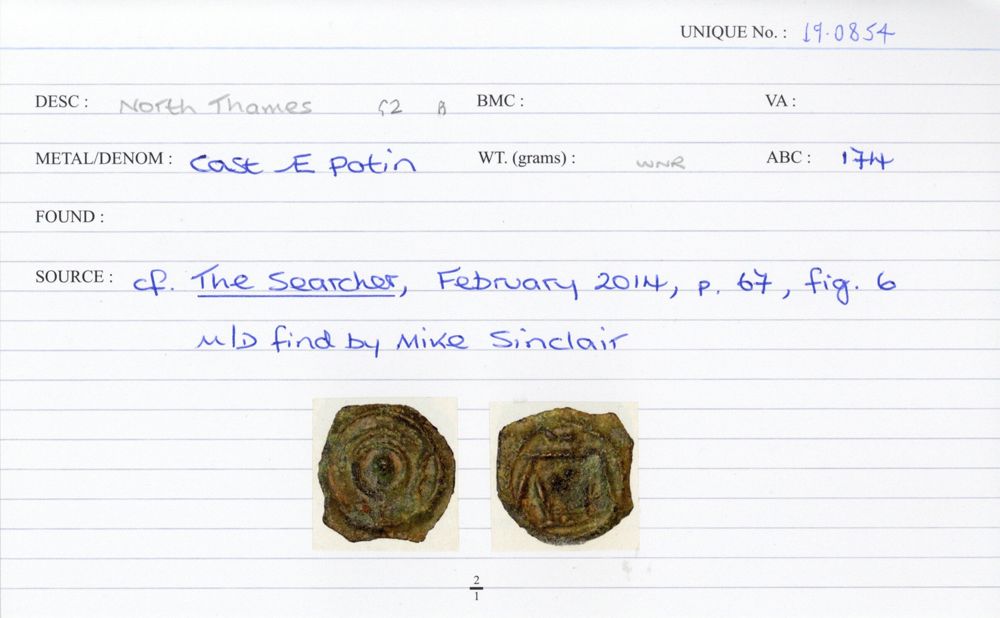 UNIQUE No. : 19.0854
DESC : North Thames B BMC : VA :
METAL/DENOM : Cast Æ Potin WT. (grams) : WNR ABC : 174
FOUND :
SOURCE : cf. The Searcher, February 2014, p. 67, fig. 6
M/D find by Mike Sinclair
2
1